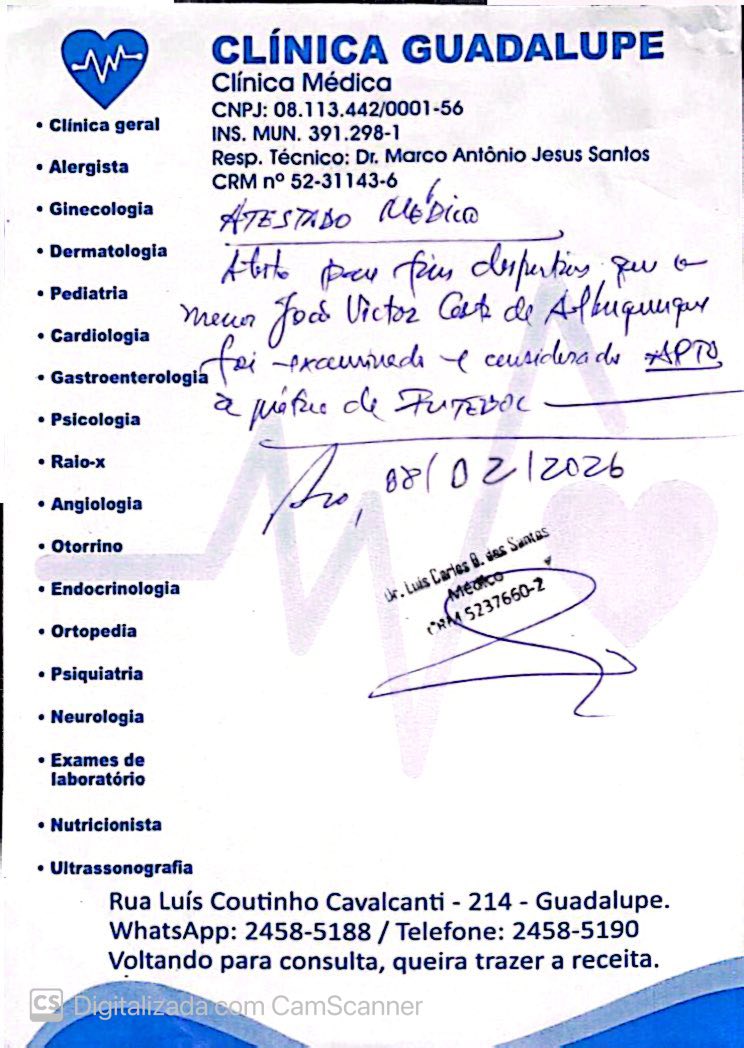 CLÍNICA GUADALUPE
Clínica Médica
CNPJ: 08.113.442/0001-56
INS. MUN. 391.298-1
Resp. Técnico: Dr. Marco Antônio Jesus Santos
CRM nº 52-31143-6
• Clínica geral
• Alergista
• Ginecologia
• Dermatologia
• Pediatria
• Cardiologia
• Gastroenterologia
• Psicologia
• Raio-x
• Angiologia
• Otorrino
• Endocrinologia
• Ortopedia
• Psiquiatria
• Neurologia
• Exames de
laboratório
• Nutricionista
• Ultrassonografia
ATESTADO MÉDICO
Atesto para fins desportivos que o
menor João Victor Costa de Albuquerque
foi examinado e considerado APTO
a prática de FUTEBOL
Rio, 08/02/2026
Dr. Luis Carlos B. dos Santos
Médico
CRM 5237660-2
Rua Luís Coutinho Cavalcanti - 214 - Guadalupe.
WhatsApp: 2458-5188 / Telefone: 2458-5190
Voltando para consulta, queira trazer a receita.
CS Digitalizada com CamScanner